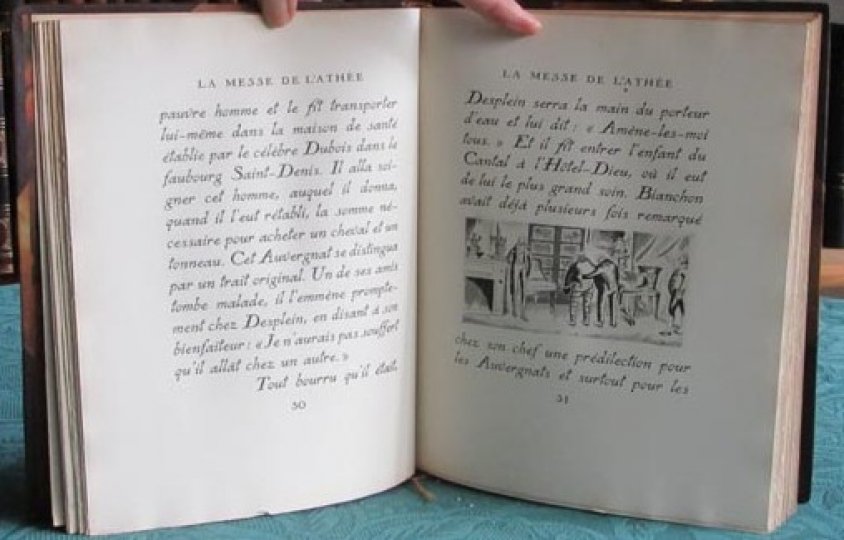 LA MESSE DE L'ATHÉE
pauvre homme et le fit transporter
lui-même dans la maison de santé
établie par le célèbre Dubois dans le
faubourg Saint-Denis. Il alla soi-
gner cet homme, auquel il donna,
quand il l'eut rétabli, la somme né-
cessaire pour acheter un cheval et un
tonneau. Cet Auvergnat se distingua
par un trait original. Un de ses amis
tombe malade, il l'emmène prompte-
ment chez Desplein, en disant à son
bienfaiteur : « Je n'aurais pas souffert
qu'il allât chez un autre. »
Tout bourru qu'il était,
50
LA MESSE DE L'ATHÉE
Desplein serra la main du porteur
d'eau et lui dit : « Amène-les-moi
tous. » Et il fit entrer l'enfant du
Cantal à l'Hôtel-Dieu, où il eut
de lui le plus grand soin. Bianchon
avait déjà plusieurs fois remarqué
chez son chef une prédilection pour
les Auvergnats et surtout pour les
51